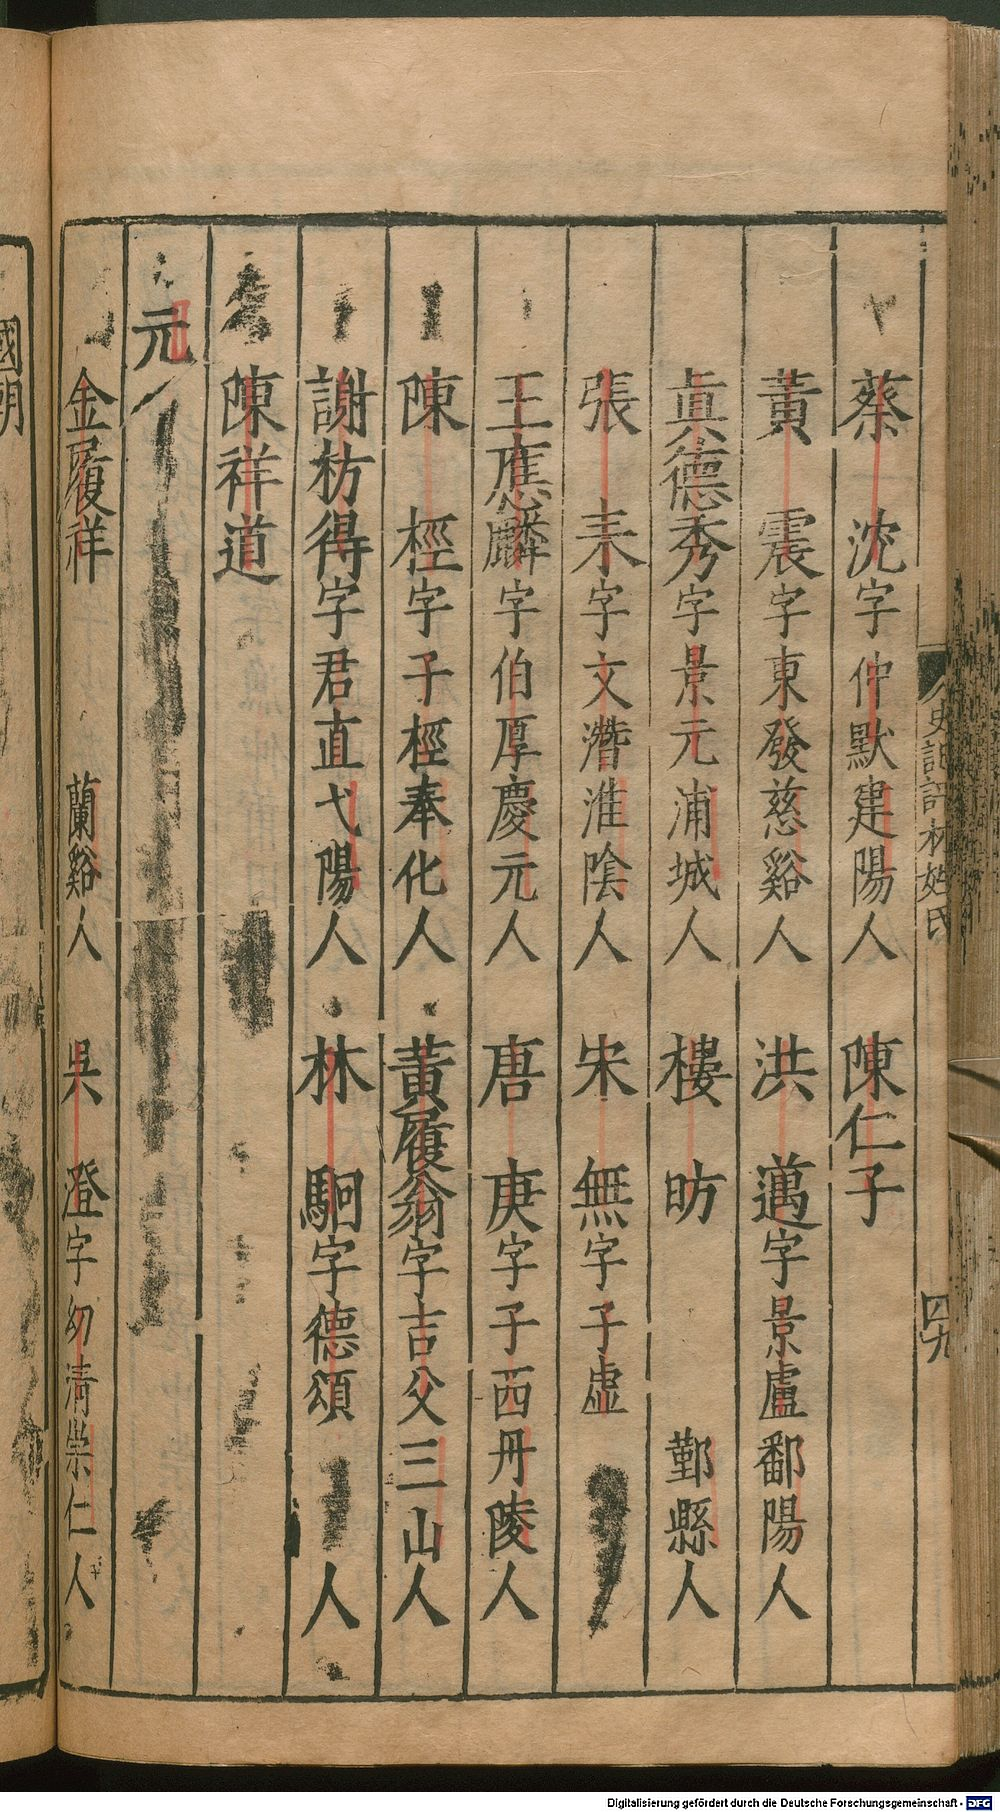 史記評林姓氏
四九
蔡沈字仲默建陽人 陳仁子
黃震字東發慈谿人 洪邁字景盧鄱陽人
真德秀字景元浦城人 樓昉 鄞縣人
張耒字文潛淮陰人 宋無字子虛
王應麟字伯厚慶元人 唐庚字子西丹陵人
陳桱字子桱奉化人 黃履翁字吉父三山人
謝枋得字君直弋陽人 林駉字德頌 人
陳祥道
元
金履祥 蘭谿人 吳澄字幼清崇仁人
國朝
Digitalisierung gefördert durch die Deutsche Forschungsgemeinschaft - DFG